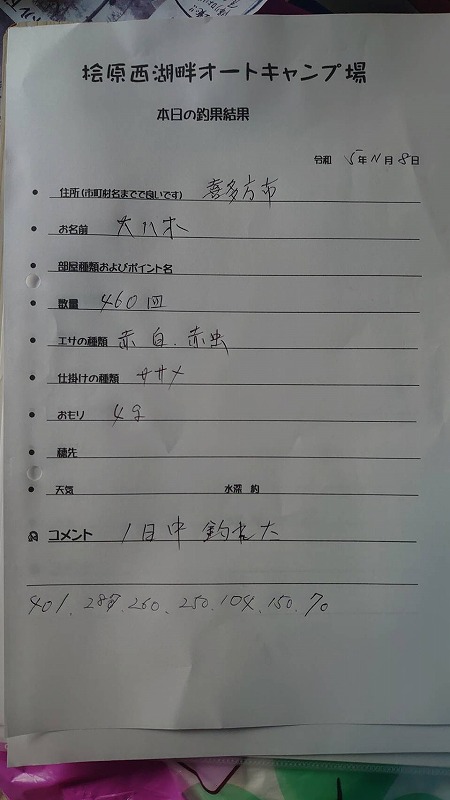 桧原西湖畔オートキャンプ場
本日の釣果結果
令和 5年 11月 8日
住所(市町村名までで良いです) 喜多方市
お名前 大八木
部屋種類およびポイント名
数量 460
エサの種類 赤白.赤虫
仕掛けの種類 ササメ
おもり 4g
穂先
天気 水深 約
コメント 1日中 釣れた
401.287.260.250.104.150.70